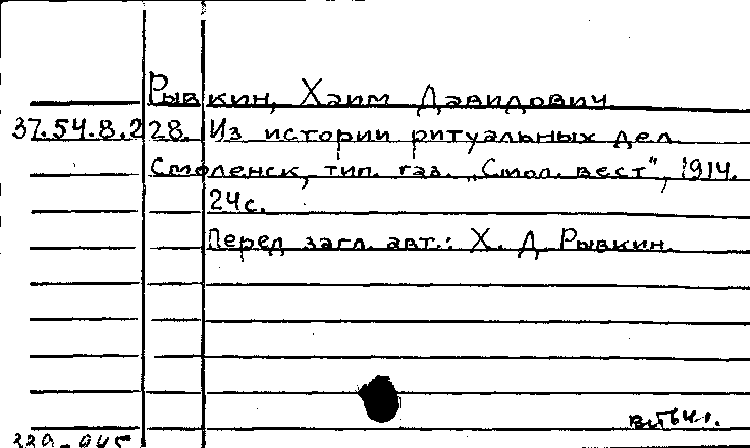 Рывкин, Хаим Давидович
37.54.8.228. Из истории ритуальных дел
Смоленск, тип. газ. „Смол. вест", 1914.
24 с.
Перед загл. авт.: Х. Д. Рывкин.